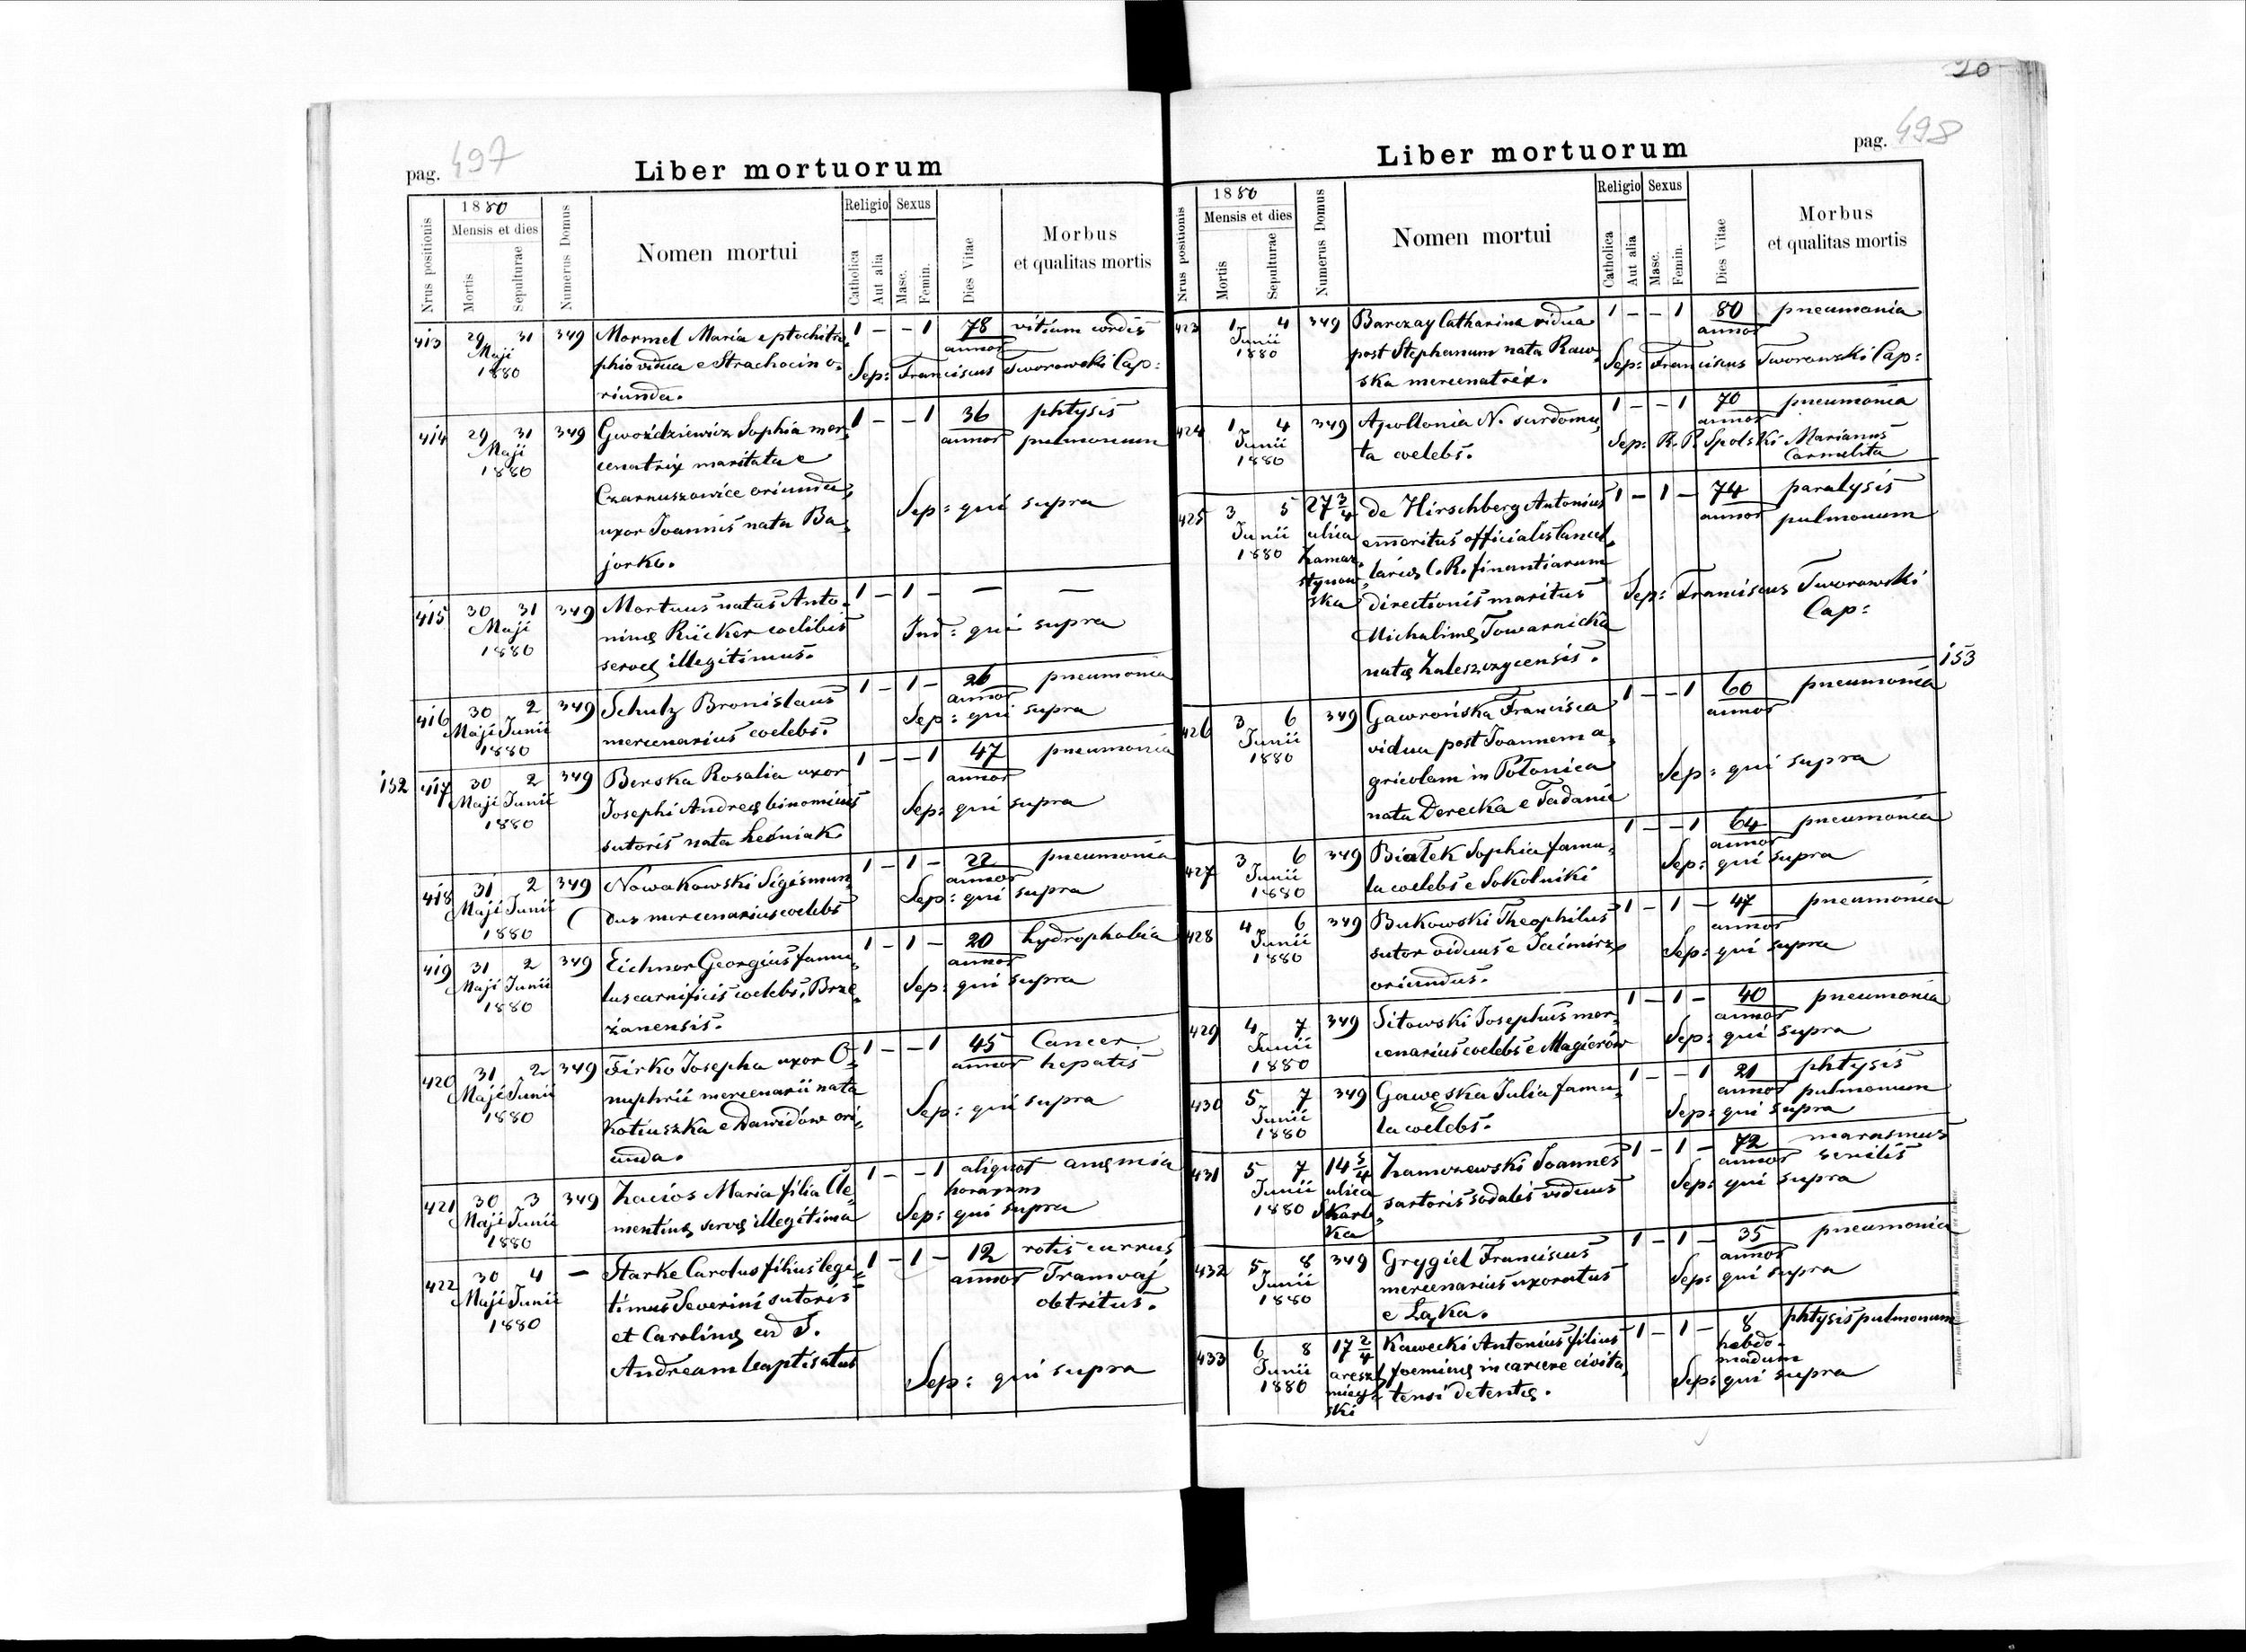 20
pag. 497
Liber mortuorum
Nrus positionis
1880
Mensis et dies
Mortis
Sepulturae
Numerus Domus
Nomen mortui
Religio
Catholica
Aut alia
Sexus
Masc.
Femin.
Dies Vitae
Morbus
et qualitas mortis
413 29 31 349 Mormel Maria e ptochotro, 1 - - 1 78 vitium cordis
Maji phio vidua e Strachocin o, annor
1880 riunda. Sep: Franciscus Tworowski Cap:
414 29 31 349 Gwoździewicz Sophia mer, 1 - - 1 36 phtysis
Maji cenatrix maritata e annor pulmonum
1880 Czarnuszowice oriunda,
uxor Joannis nata Ba, Sep: qui supra
jorko.
415 30 31 349 Mortuus natus Anto, 1 - 1 - — —
Maji ninę Rücker coelibis Ind: qui supra
1880 servę illegitimus.
416 30 2 349 Schulz Bronislaus 1 - 1 - 26 pneumonia
Maji Junii mercenarius coelebs. annor
1880 Sep: qui supra
152 417 30 2 349 Berska Rosalia uxor 1 - - 1 47 pneumonia
Maji Junii Josephi Andreę binomius annor
1880 sutoris nata Leśniak Sep: qui supra
418 31 2 349 Nowakowski Sigismun, 1 - 1 - 22 pneumonia
Maji Junii dus mercenarius coelebs annor
1880 Sep: qui supra
419 31 2 349 Eichner Georgius famu, 1 - 1 - 20 hydrophobia
Maji Junii lus carnificis coelebs, Brze, annor
1880 żanensis. Sep: qui supra
420 31 2 349 Firko Josepha uxor O= 1 - - 1 45 Cancer
Maji Junii nuphrii mercenarii nata annor hepatis
1880 Kotiuszka e Dawidów ori, Sep: qui supra
unda.
421 30 3 349 Zacios Maria filia Cle, 1 - - 1 aliquot anęmia
Maji Junii mentinę servę illegitima horarum
1880 Sep: qui supra
422 30 4 — Starke Carolus filius legi= 1 - 1 - 12 rotis currus
Maji Junii timus Severini sutoris annor Tramvaj
1880 et Carolinę ad S. obtritus.
Andream baptisatus Sep: qui supra
pag. 498
Liber mortuorum
Nrus positionis
1880
Mensis et dies
Mortis
Sepulturae
Numerus Domus
Nomen mortui
Religio
Catholica
Aut alia
Sexus
Masc.
Femin.
Dies Vitae
Morbus
et qualitas mortis
423 1 4 349 Barczay Catharina vidua 1 - - 1 80 pneumonia
Junii post Stephanum nata Raw, annor
1880 ska mercenatrix. Sep: Franciscus Tworowski Cap:
424 1 4 349 Apollonia N. surdomu, 1 - - 1 70 pneumonia
Junii ta coelebs. annor
1880 Sep: R. P. Spolski Marianus
Carmelita
425 3 5 27 3/4 de Hirschberg Antonius 1 - 1 - 74 paralysis
Junii ulica emeritus officialis Cancel, annor pulmonum
1880 Zamar, larię C. R. finantiarum
stynow ska directionis maritus Sep: Franciscus Tworowski
Michalinę Towarnicka Cap:
natę Zaleszczycensis.
153
426 3 6 349 Gawrońska Francisca 1 - - 1 60 pneumonia
Junii vidua post Joannem a, annor
1880 gricolam in Połonica Sep: qui supra
nata Derecka e Tadanie
427 3 6 349 Białek Sophia famu, 1 - - 1 64 pneumonia
Junii la coelebs e Sokolniki annor
1880 Sep: qui supra
428 4 6 349 Bukowski Theophilus 1 - 1 - 47 pneumonia
Junii sutor viduus e Jaćmirz annor
1880 oriundus. Sep: qui supra
429 4 7 349 Sitowski Josephus mer, 1 - 1 - 40 pneumonia
Junii cenarius coelebs e Magierów annor
1880 Sep: qui supra
430 5 7 349 Gawęska Julia famu, 1 - - 1 21 phtysis
Junii la coelebs. annor pulmonum
1880 Sep: qui supra
431 5 7 14 5/4 Zamczewski Joannes 1 - 1 - 72 marasmus
Junii ulica sartoris sodalis viduus annor senilis
1880 Skarb, Sep: qui supra
ka
432 5 8 349 Grygiel Franciscus 1 - 1 - 35 pneumonia
Junii mercenarius uxoratus annor
1880 e Łąka. Sep: qui supra
433 6 8 17 2/4 Kawecki Antonius filius 1 - 1 - 8 phtysis pulmonum
Junii areszt foeminę in carcere civita, hebdo-
1880 miej= tensi detentę. madum
ski Sep: qui supra